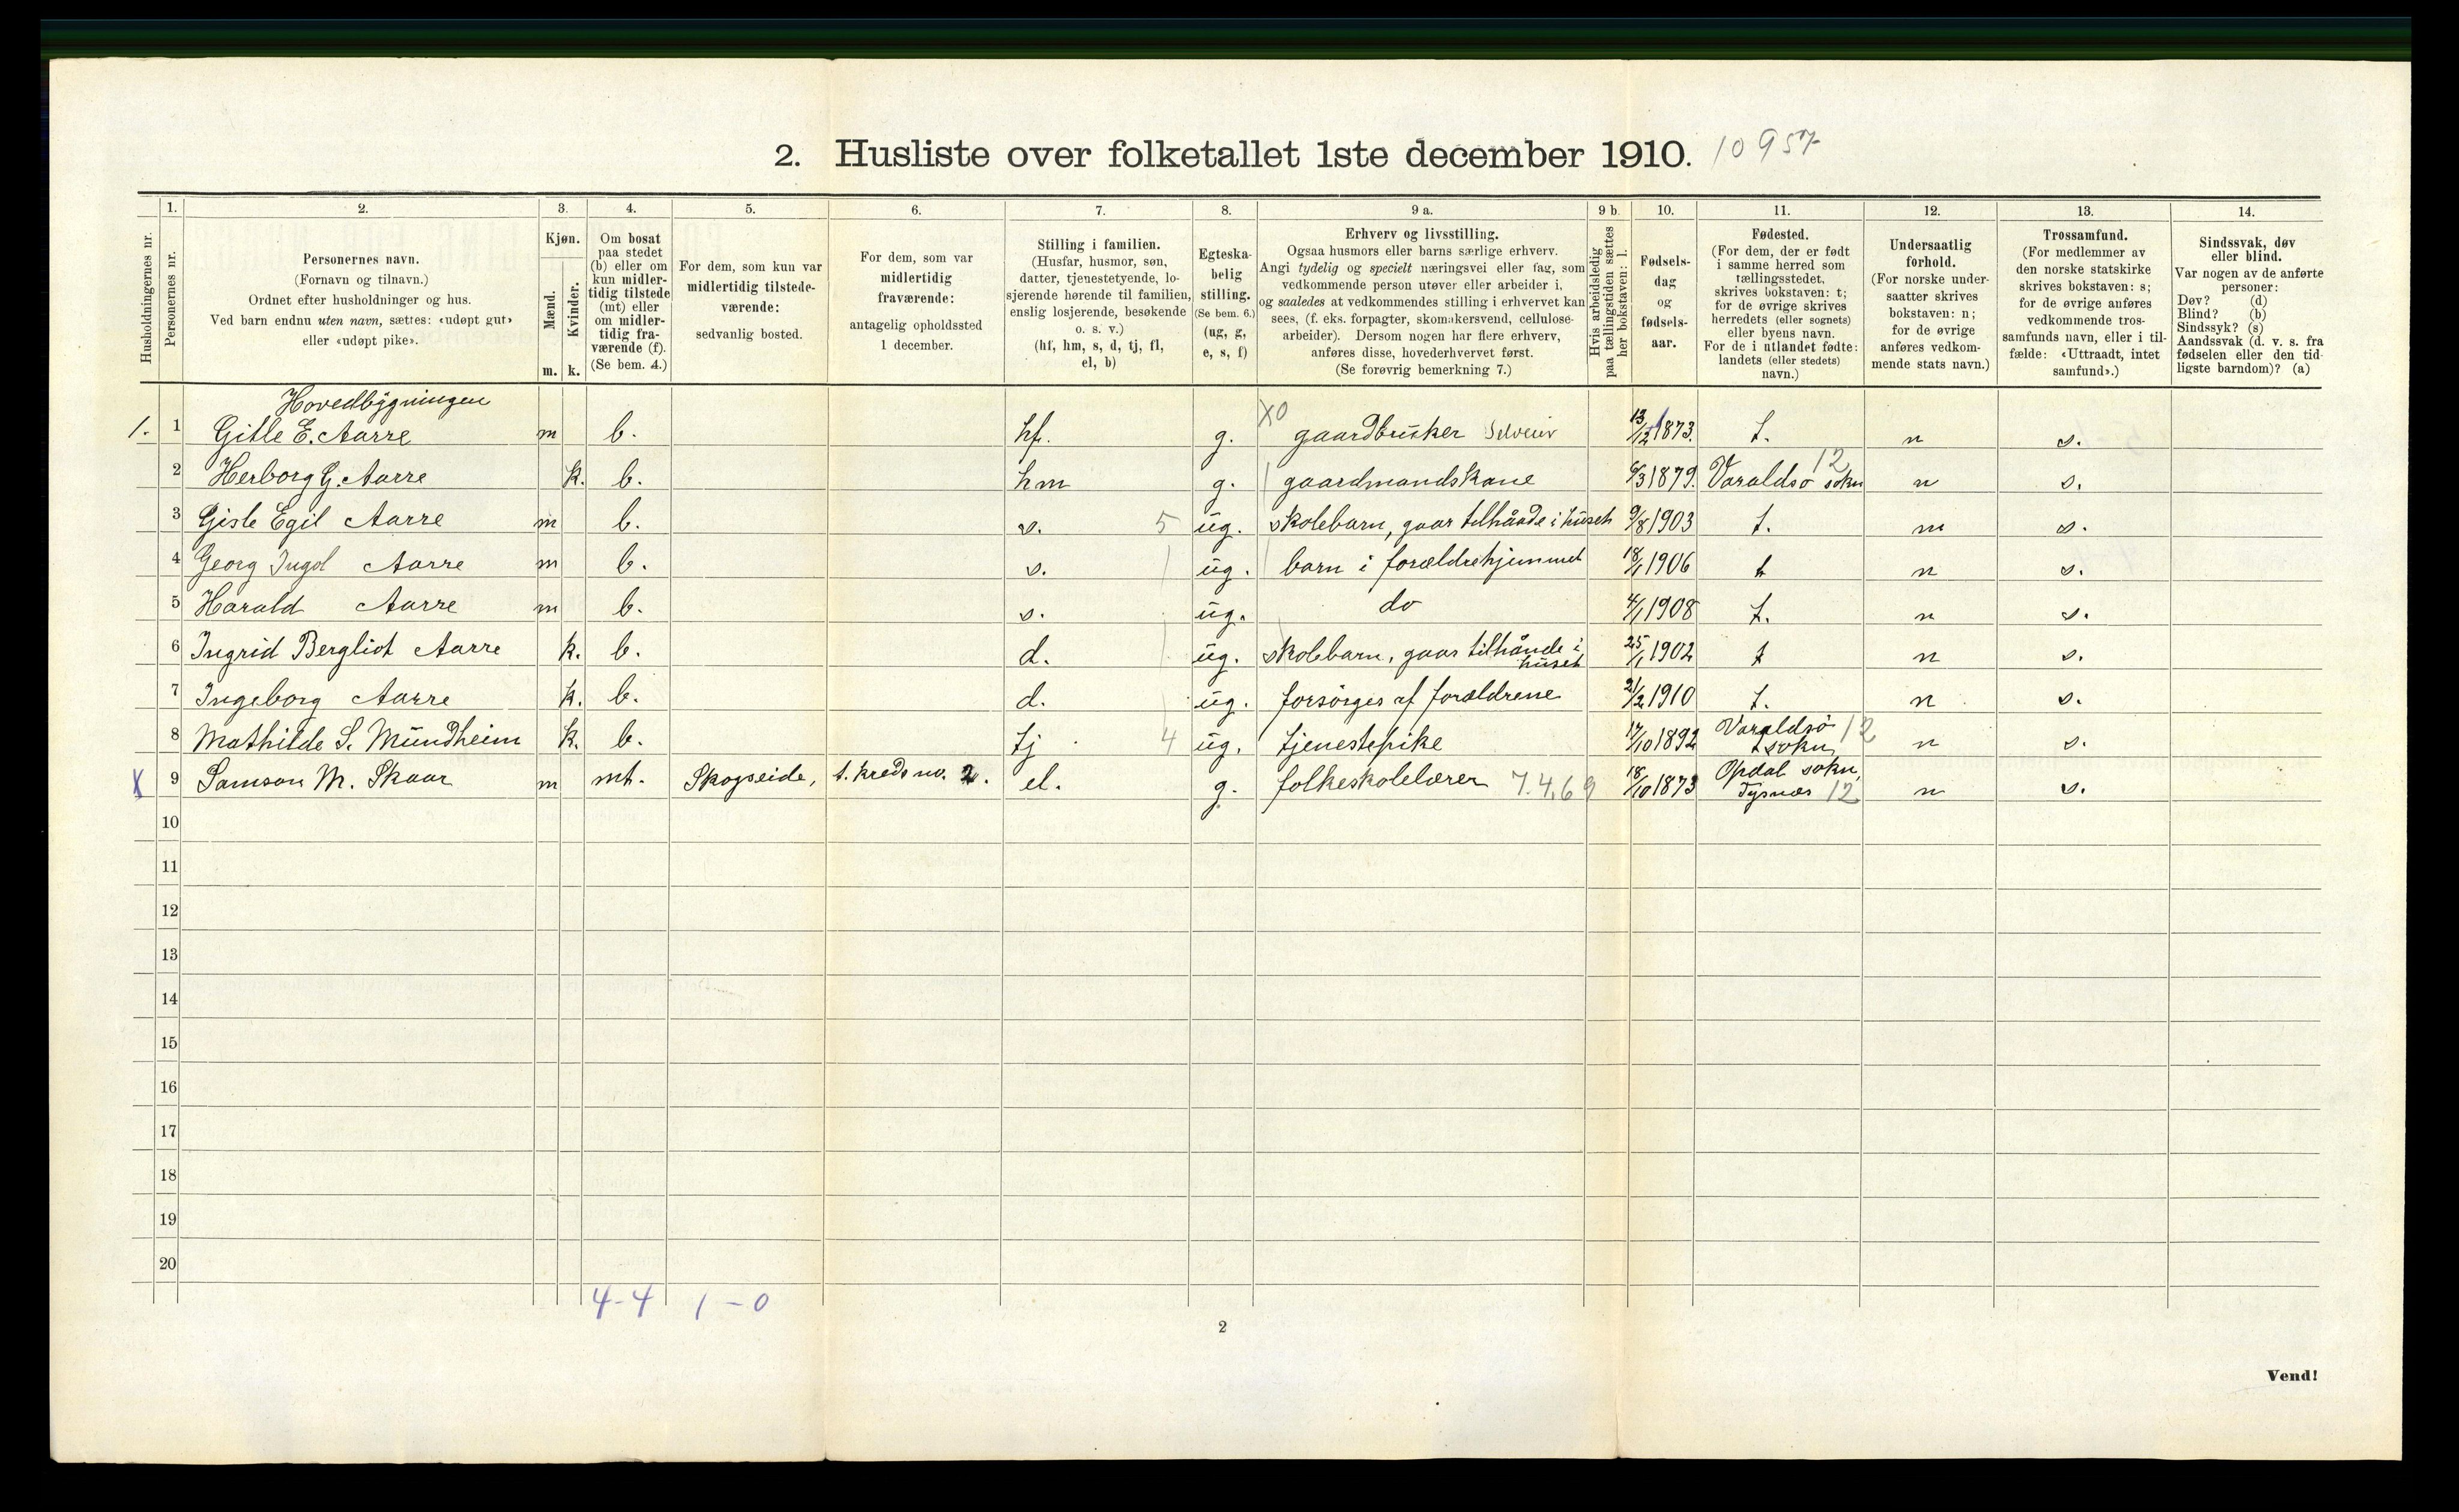 2. Husliste over folketallet 1ste december 1910. 10957
Husholdningernes nr.
1. Personernes nr.
2. Personernes navn.
(Fornavn og tilnavn.)
Ordnet efter husholdninger og hus.
Ved barn endnu uten navn, sættes: «udøpt gut»
eller «udøpt pike».
3. Kjøn.
Mænd. Kvinder.
m. k.
4. Om bosat
paa stedet
(b) eller om
kun midler-
tidig tilstede
(mt) eller
om midler-
tidig fra-
værende (f).
(Se bem. 4.)
5. For dem, som kun var
midlertidig tilstede-
værende:
sedvanlig bosted.
6. For dem, som var
midlertidig
fraværende:
antagelig opholdssted
1 december.
7. Stilling i familien.
(Husfar, husmor, søn,
datter, tjenestetyende, lo-
sjerende hørende til familien,
enslig losjerende, besøkende
o. s. v.)
(hf, hm, s, d, tj, fl,
el, b)
8. Egteska-
belig
stilling.
(Se bem. 6.)
(ug, g,
e, s, f)
9 a. Erhverv og livsstilling.
Ogsaa husmors eller barns særlige erhverv.
Angi tydelig og specielt næringsvei eller fag, som
vedkommende person utøver eller arbeider i,
og saaledes at vedkommendes stilling i erhvervet kan
sees, (f. eks. forpagter, skomakersvend, cellulose-
arbeider). Dersom nogen har flere erhverv,
anføres disse, hovederhvervet først.
(Se forøvrig bemerkning 7.)
9 b. Hvis arbeidsledig
paa tællingstiden sættes
her bokstaven: l.
10. Fødsels-
dag
og
fødsels-
aar.
11. Fødested.
(For dem, der er født
i samme herred som
tællingsstedet,
skrives bokstaven: t;
for de øvrige skrives
herredets (eller sognets)
eller byens navn.
For de i utlandet fødte:
landets (eller stedets)
navn.)
12. Undersaatlig
forhold.
(For norske under-
saatter skrives
bokstaven: n;
for de øvrige
anføres vedkom-
mende stats navn.)
13. Trossamfund.
(For medlemmer av
den norske statskirke
skrives bokstaven: s;
for de øvrige anføres
vedkommende tros-
samfunds navn, eller i til-
fælde: «Uttraadt, intet
samfund».)
14. Sindssvak, døv
eller blind.
Var nogen av de anførte
personer:
Døv? (d)
Blind? (b)
Sindssyk? (s)
Aandssvak (d. v. s. fra
fødselen eller den tid-
ligste barndom)? (a)
Hovedbygningen
1. 1 Gitle E. Aarre m b. hf. g. X0 gaardbruker Selveier 13/12 1873. t. n s.
2 Herborg G. Aarre k. b. hm g. gaardmandskone 6/3 1879. Varaldsö sokn 12 n s.
3 Gisle Egil Aarre m b. s. 5 ug. skolebarn, gaar tilhånde i huset 9/8 1903 t. n s.
4 Georg Ingol Aarre m b. s. ug. barn i forældrehjemmet 18/1 1906 t n s.
5 Harald Aarre m b. s. ug. do 4/1 1908 t. n s.
6 Ingrid Bergliot Aarre k. b. d. ug. skolebarn, gaar tilhånde i
huset 25/1 1902 t n s.
7 Ingeborg Aarre k. b. d. ug. forsörges af forældrene 21/2 1910 t. n s.
8 Mathilde S. Mundheim k. b. tj 4 ug. tjenestepike 17/10 1892 Varaldsö 12
sokn n s.
X 9 Samson M. Skaar m mt. Skogseide, t. kreds no. 2. el. g. folkeskolelærer 7.4.69 18/10 1873 Opdal sokn,
Tysnæs 12 n s.
10
11
12
13
14
15
16
17
18
19
20
4-4 1-0
2
Vend!